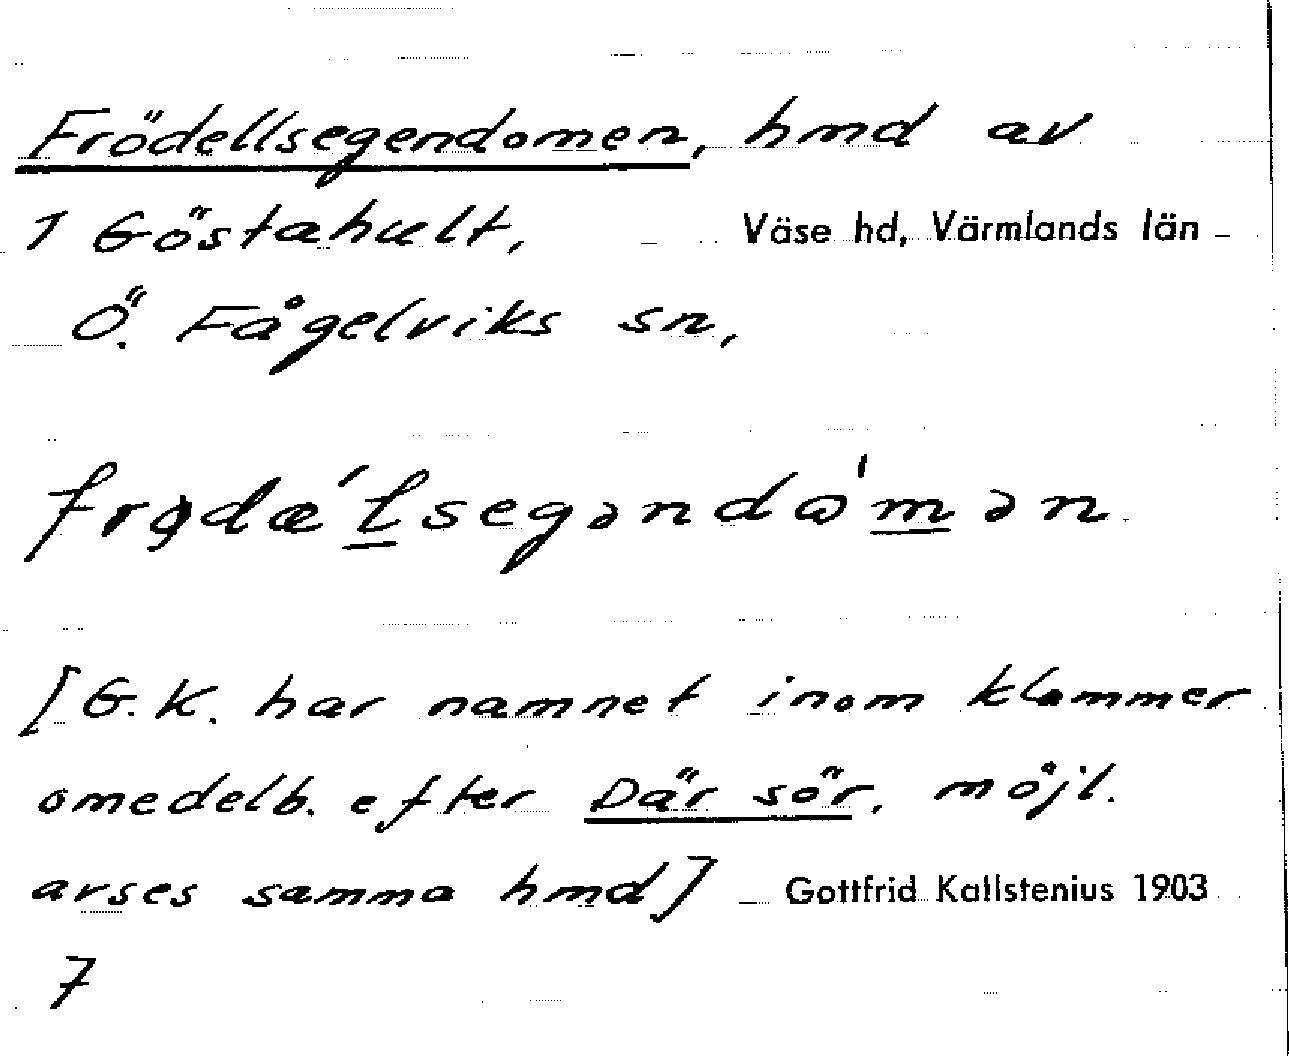 Frödellsegendomen, hmd av
1 Göstahult, Väse hd, Värmlands län
Ö. Fågelviks sn,
frødæ´lsegəndω'mən
[G.K. har namnet inom klammer
omedelb. efter Där sör, möjl.
avses samma hmd] Gottfrid Kallstenius 1903
7